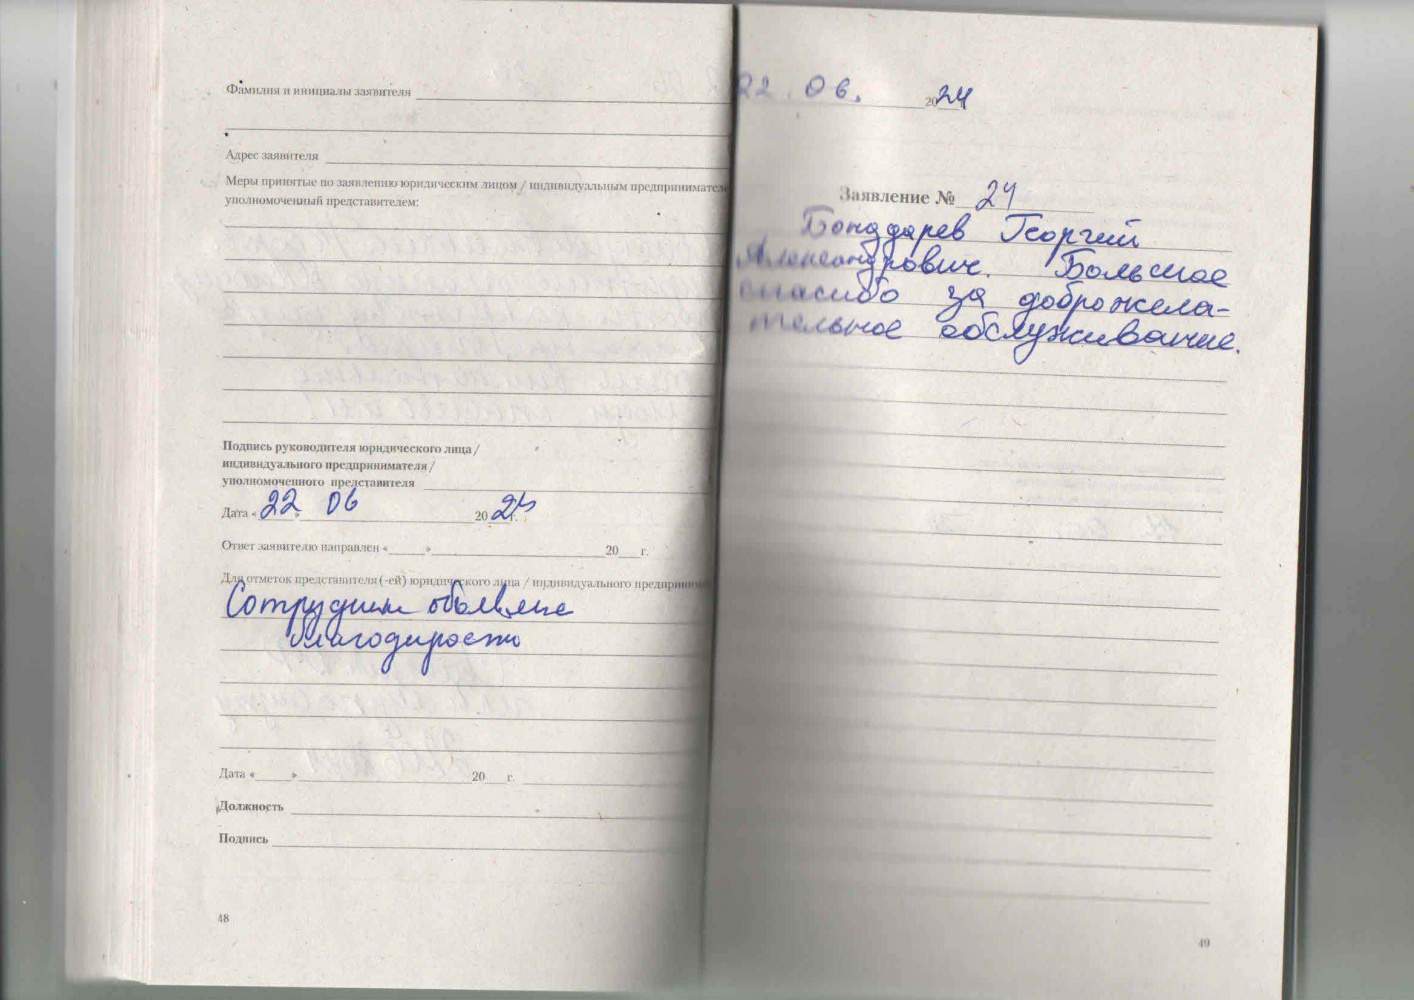 Фамилия и инициалы заявителя
Адрес заявителя
Меры принятые по заявлению юридическим лицом / индивидуальным предпринимателе
уполномоченный представителем:
Подпись руководителя юридического лица /
индивидуального предпринимателя /
уполномоченного представителя
Дата « 22 » 06 20 24 г.
Ответ заявителю направлен «     »      20    г.
Для отметок представителя (-ей) юридического лица / индивидуального предприни
Сотрудникам объявлена
благодарность
Дата «     »      20    г.
Должность
Подпись
48
22. 06. 2024
Заявление № 24
Бонддарев Георгий
Александрович. Большое
спасибо за доброжела-
тельное обслуживание.
49